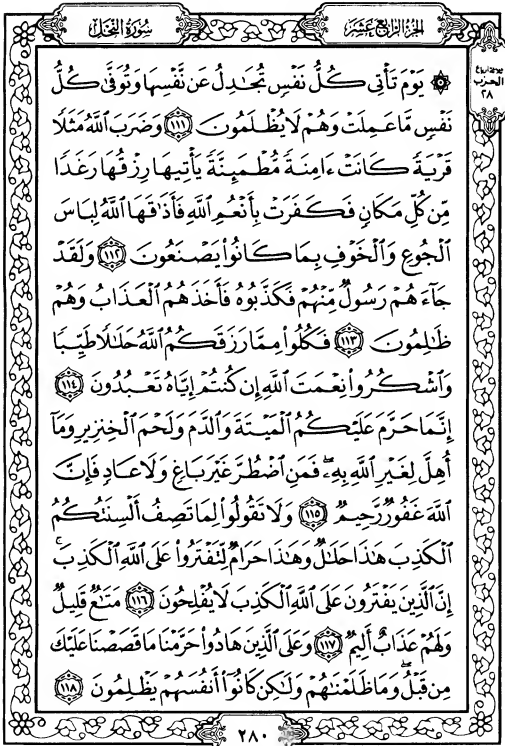 سُورَةُ النَّحْلِ
الجُزْءُ الرَّابِعَ عَشَرَ
الحزب
٢٨
۞ يَوْمَ تَأْتِي كُلُّ نَفْسٍ تُجَٰدِلُ عَن نَّفْسِهَا وَتُوَفَّىٰ كُلُّ
نَفْسٍ مَّا عَمِلَتْ وَهُمْ لَا يُظْلَمُونَ ١١١ وَضَرَبَ ٱللَّهُ مَثَلًا
قَرْيَةً كَانَتْ ءَامِنَةً مُّطْمَئِنَّةً يَأْتِيهَا رِزْقُهَا رَغَدًا
مِّن كُلِّ مَكَانٍ فَكَفَرَتْ بِأَنْعُمِ ٱللَّهِ فَأَذَٰقَهَا ٱللَّهُ لِبَاسَ
ٱلْجُوعِ وَٱلْخَوْفِ بِمَا كَانُوا۟ يَصْنَعُونَ ١١٢ وَلَقَدْ
جَآءَهُمْ رَسُولٌ مِّنْهُمْ فَكَذَّبُوهُ فَأَخَذَهُمُ ٱلْعَذَابُ وَهُمْ
ظَٰلِمُونَ ١١٣ فَكُلُوا۟ مِمَّا رَزَقَكُمُ ٱللَّهُ حَلَٰلًا طَيِّبًا
وَٱشْكُرُوا۟ نِعْمَتَ ٱللَّهِ إِن كُنتُمْ إِيَّاهُ تَعْبُدُونَ ١١٤
إِنَّمَا حَرَّمَ عَلَيْكُمُ ٱلْمَيْتَةَ وَٱلدَّمَ وَلَحْمَ ٱلْخِنزِيرِ وَمَآ
أُهِلَّ لِغَيْرِ ٱللَّهِ بِهِۦۖ فَمَنِ ٱضْطُرَّ غَيْرَ بَاغٍ وَلَا عَادٍ فَإِنَّ
ٱللَّهَ غَفُورٌ رَّحِيمٌ ١١٥ وَلَا تَقُولُوا۟ لِمَا تَصِفُ أَلْسِنَتُكُمُ
ٱلْكَذِبَ هَٰذَا حَلَٰلٌ وَهَٰذَا حَرَامٌ لِّتَفْتَرُوا۟ عَلَى ٱللَّهِ ٱلْكَذِبَۚ
إِنَّ ٱلَّذِينَ يَفْتَرُونَ عَلَى ٱللَّهِ ٱلْكَذِبَ لَا يُفْلِحُونَ ١١٦ مَتَٰعٌ قَلِيلٌ
وَلَهُمْ عَذَابٌ أَلِيمٌ ١١٧ وَعَلَى ٱلَّذِينَ هَادُوا۟ حَرَّمْنَا مَا قَصَصْنَا عَلَيْكَ
مِن قَبْلُۖ وَمَا ظَلَمْنَٰهُمْ وَلَٰكِن كَانُوٓا۟ أَنفُسَهُمْ يَظْلِمُونَ ١١٨
٢٨٠